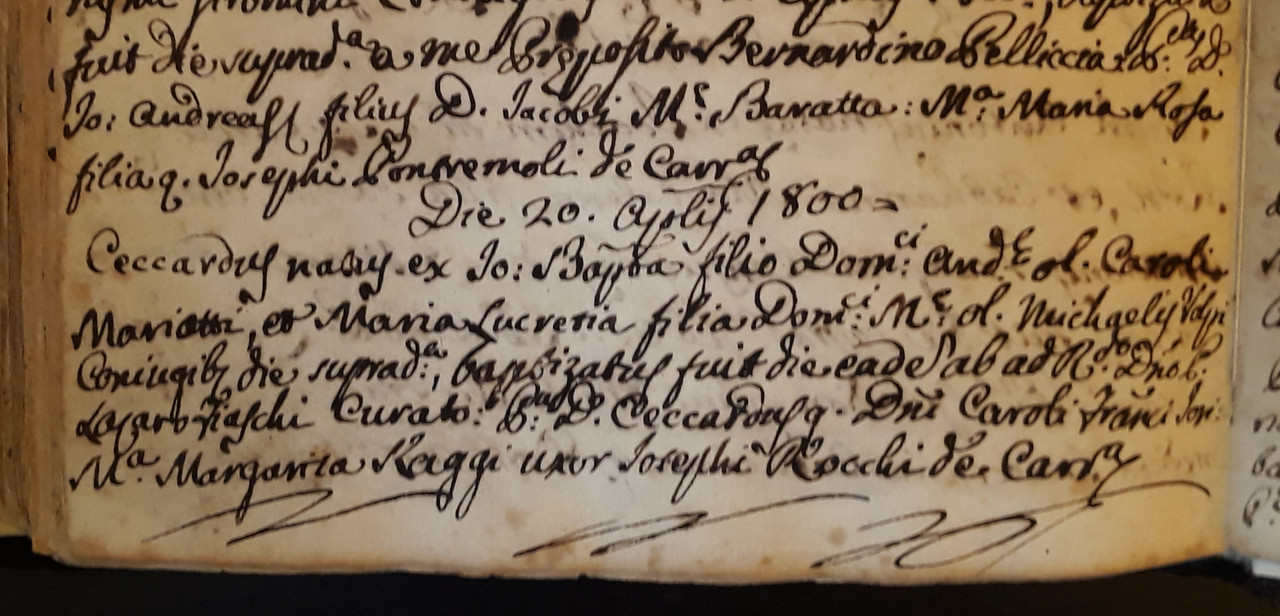 fuit die suprad.ª a me Preposito Bernardino Pelliccia: D.
Jo: Andreas filius D. Jacobi M.ᵉ Baratta: M.ª Maria Rosa
filia q. Josephi Pontremoli de Carr.ª
Die 20. Aplis 1800=
Ceccardus natus ex Jo: Bapta filio Dom.ci And.e ol. Caroli
Mariotti, et Maria Lucretia filia Dom.ci M.ᵉ ol. Michaelis Volpi
Coniugibs die suprad.ª, baptizatus fuit die eade ab ad R.do Dno
Lazaro Fiaschi Curato: D. Ceccardus q. Dni Caroli Franci
M.ª Margarita Raggi uxor Josephi Rocchi de Carr.ª